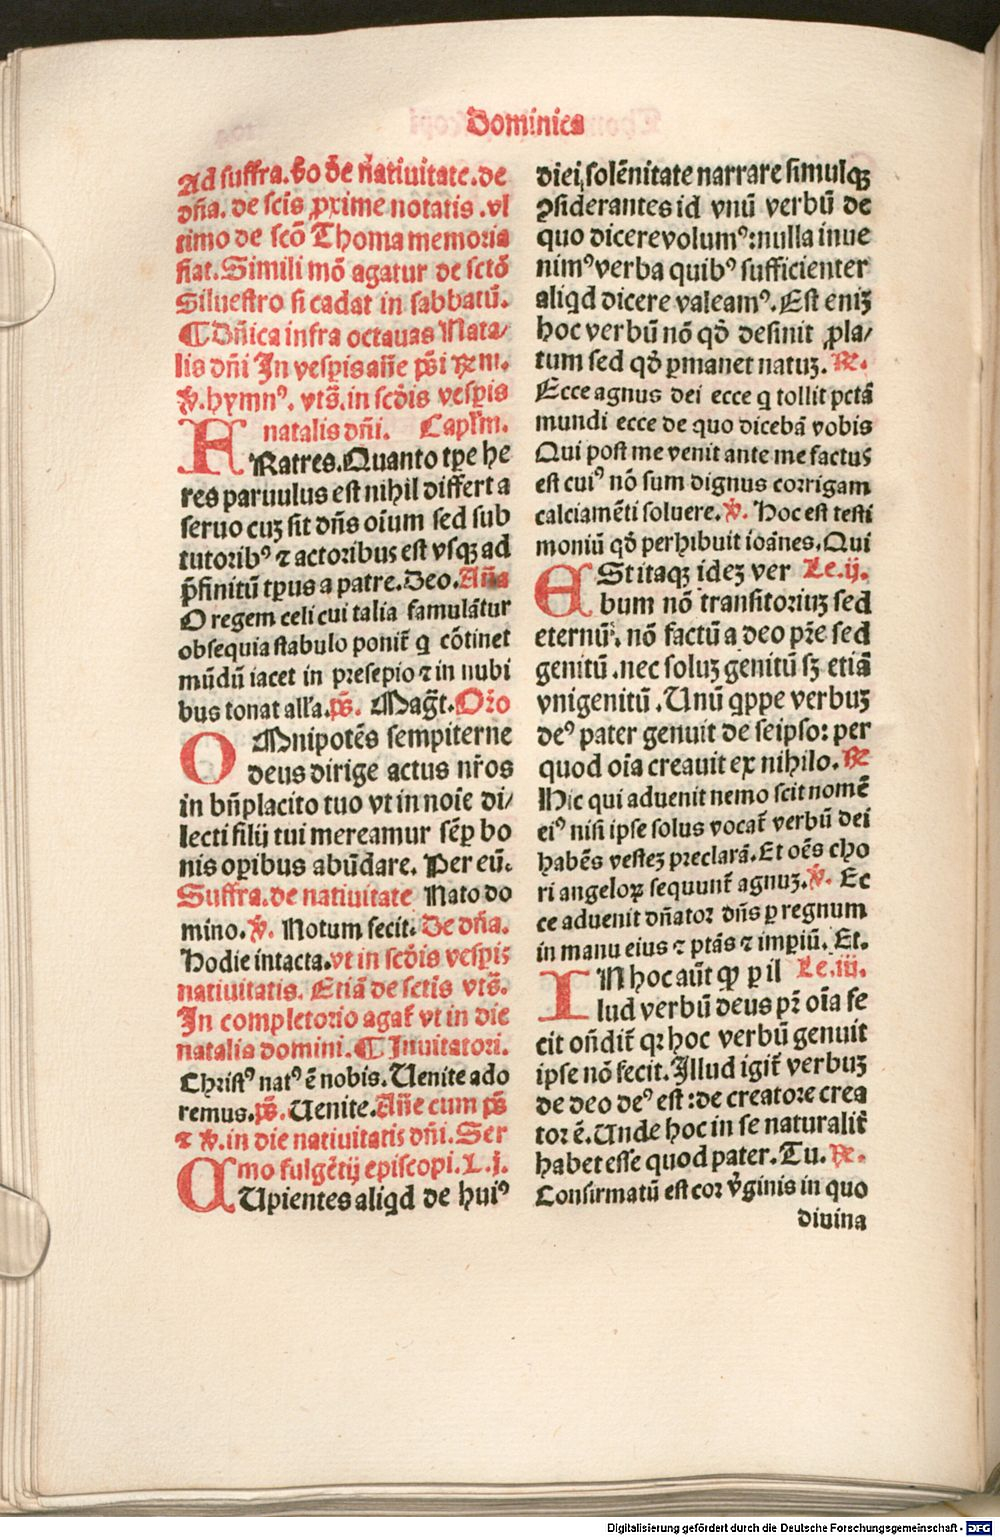 Dominica
Ad suffra. vo de natiuitate. de
dña. de scis ꝓxime notatis. vl
timo de scō Thoma memoria
fiat. Simili mō agatur de sctō
Siluestro si cadat in sabbatū.
¶ Dñica infra octauas Nata/
lis dñi In vesꝑis añe ps̄i ℞m.
℣. hymnꝰ. vts̄. in scd̄is vesꝑis
natalis dñi. Capl'm.
FRatres. Quanto tꝑe he
res paruulus est nihil differt a
seruo cuʒ sit dñs oīum sed sub
tutoribꝰ ⁊ actoribus est vsqʒ ad
p̄finitū tꝑus a patre. Deo. Aña
O regem celi cui talia famulātur
obsequia stabulo ponit̄ q̇ cōtinet
mūdū iacet in presepio ⁊ in nubi
bus tonat all'a. ps̄. Mag̃t. Or̄o
OMnipotēs sempiterne
deus dirige actus nr̄os
in bñplacito tuo vt in noīe di/
lecti filij tui mereamur sēꝑ bo
nis oꝑibus abūdare. Per eū.
Suffra. de natiuitate Nato do
mino. ℣. Notum fecit. De dña.
Hodie intacta. vt in scd̄is vesꝑis
natiuitatis. Etiā de sctis vts̄.
In completorio agat̄ vt in die
natalis domini. ¶ Inuitatori.
Christꝰ natꝰ ē nobis. Uenite ado
remus. ps̄. Uenite. Añe cum ps̄
⁊ ℣. in die natiuitatis dñi. Ser
mo fulgētij episcopi. L. j.
CUpientes aliqd de huiꝰ
diei solēnitate narrare simulqʒ
ꝯsiderantes id vnū verbū de
quo dicere volumꝰ: nulla inue
nimꝰ verba quibꝰ sufficienter
aliqd dicere valeamꝰ. Est eniʒ
hoc verbū nō qd̄ desinit ꝓla/
tum sed qd̄ ꝑmanet natuʒ. ℞.
Ecce agnus dei ecce q̇ tollit pctā
mundi ecce de quo dicebā vobis
Qui post me venit ante me factus
est cuiꝰ nō sum dignus corrigiam
calciamēti soluere. ℣. Hoc est testi
moniū qd̄ perhibuit ioānes. Qui
ESt itaqʒ ideʒ ver Le. ij.
bum nō transitoriuʒ sed
eternū, nō factū a deo pr̄e sed
genitū. nec soluʒ genitū sʒ etiā
vnigenitū. Unū qꝓpe verbuʒ
deꝰ pater genuit de seipso: per
quod oīa creauit ex nihilo. ℞
Hic qui aduenit nemo scit nomē
eiꝰ nisi ipse solus vocat̄ verbū dei
habēs vesteʒ preclarā. Et oēs cho
ri angeloꝝ sequunt̄ agnuʒ. ℣. Ec
ce aduenit dñator dñs ꝑ regnum
in manu eius ⁊ ptās ⁊ imꝑiū. Et.
IN hoc aūt ꝙ ꝑ il Le. iij.
lud verbū deus pr̄ oīa fe
cit oñdit̄ qꝛ hoc verbū genuit
ipse nō fecit. Illud igit̄ verbuʒ
de deo deꝰ est: de creatore crea
tor ē. Unde hoc in se naturalit̄
habet esse quod pater. Tu. ℞.
Confirmatū est cor v̄ginis in quo
diuina
Digitalisierung gefördert durch die Deutsche Forschungsgemeinschaft - DFG